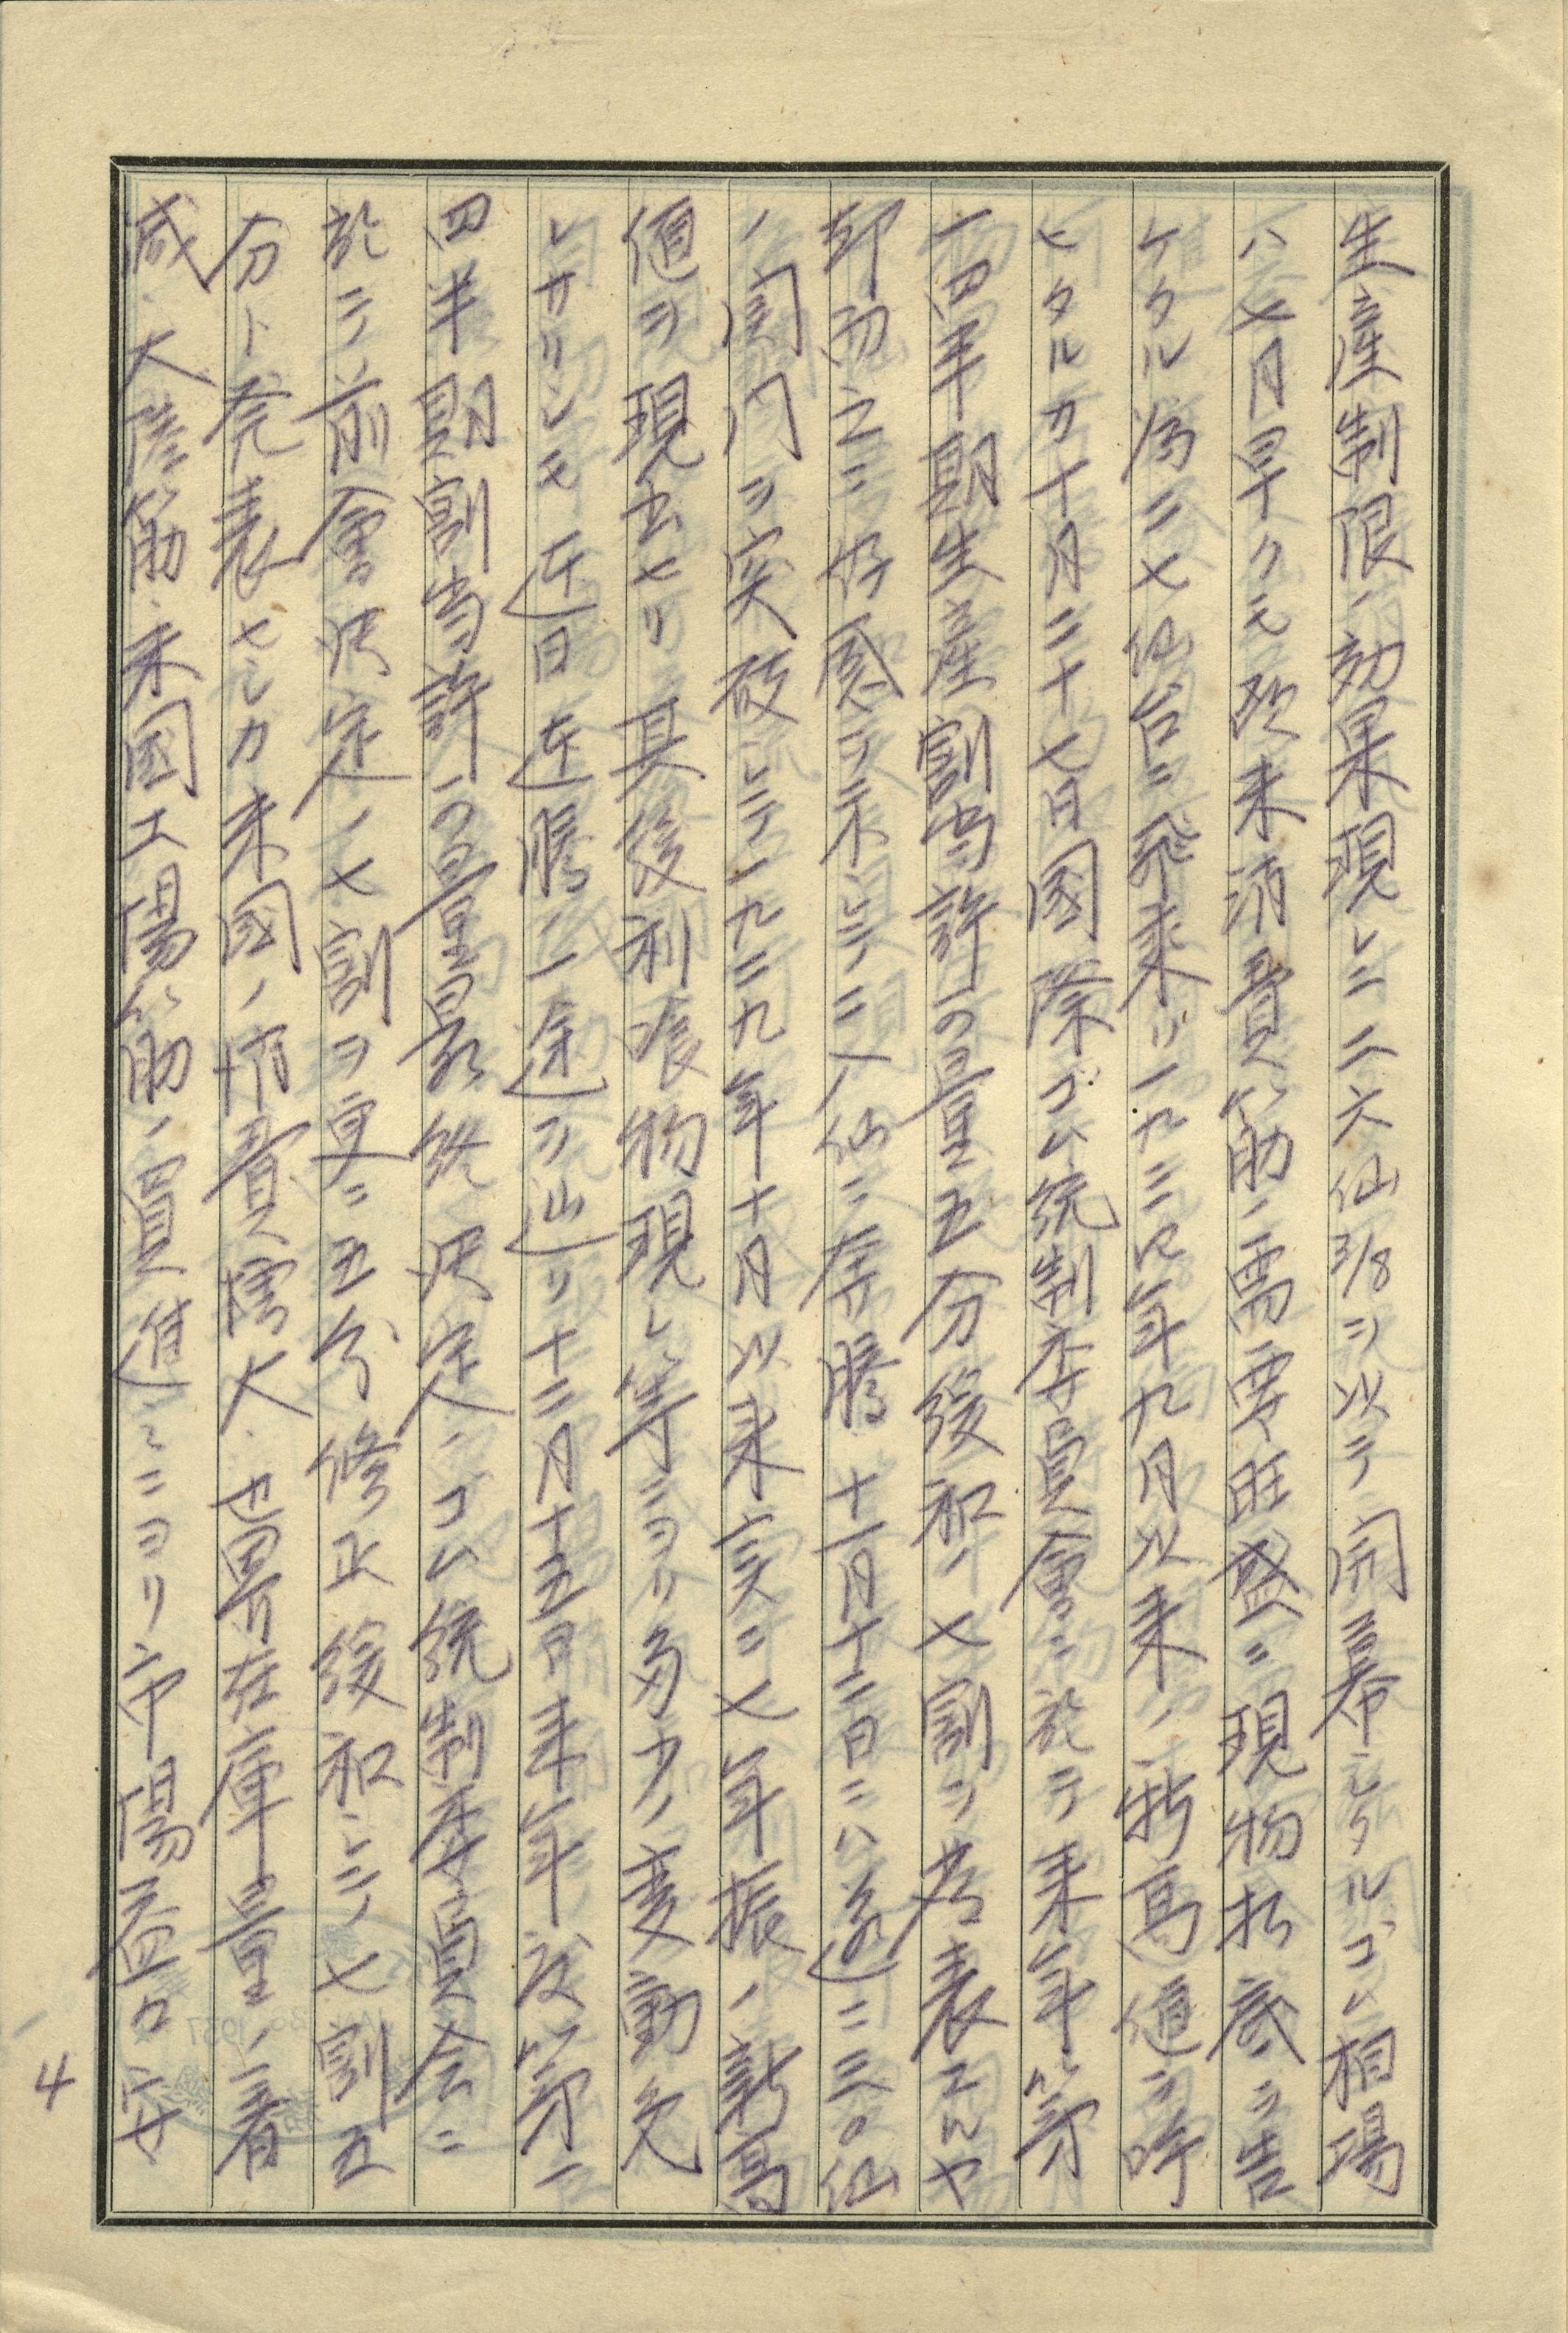 生産制限ノ効果現レ二六仙3/8ヲ以テ開幕シタルゴム相場
ハ七月早クモ欧米消費筋ノ需要旺盛ニ現物払底ヲ告
ケタル為二七仙台ニ飛来リ一九三四年九月以来ノ新高値ヲ吟
ヒタルカ十月二十七日國際ゴム統制委員會ニ於テ来年第
一四半期生産割当許可量五分緩和ノ七割ヲ発表スルヤ
却而之ニ好感ヲ示シテ二八仙ニ奔騰十一月十二日ニハ遂ニ三〇仙
ノ関門ヲ突破シテ一九二九年十月以来実ニ七年振ノ新高
値ヲ現出セリ其後利喰物現レ等ニヨリ多少ノ変動免
レサリシモ連日連騰ノ一途ヲ辿リ十二月十五日来年度第一
四半期割当許可量最終決定ノゴム統制委員会ニ
於テ前會決定ノ七割ヲ更ニ五分修正緩和シテ七割五
分ト発表セシカ米國ノ消費擴大、世界在庫量ノ著
減、大陸筋、米國工場筋ノ買進ミニヨリ市場益々
4